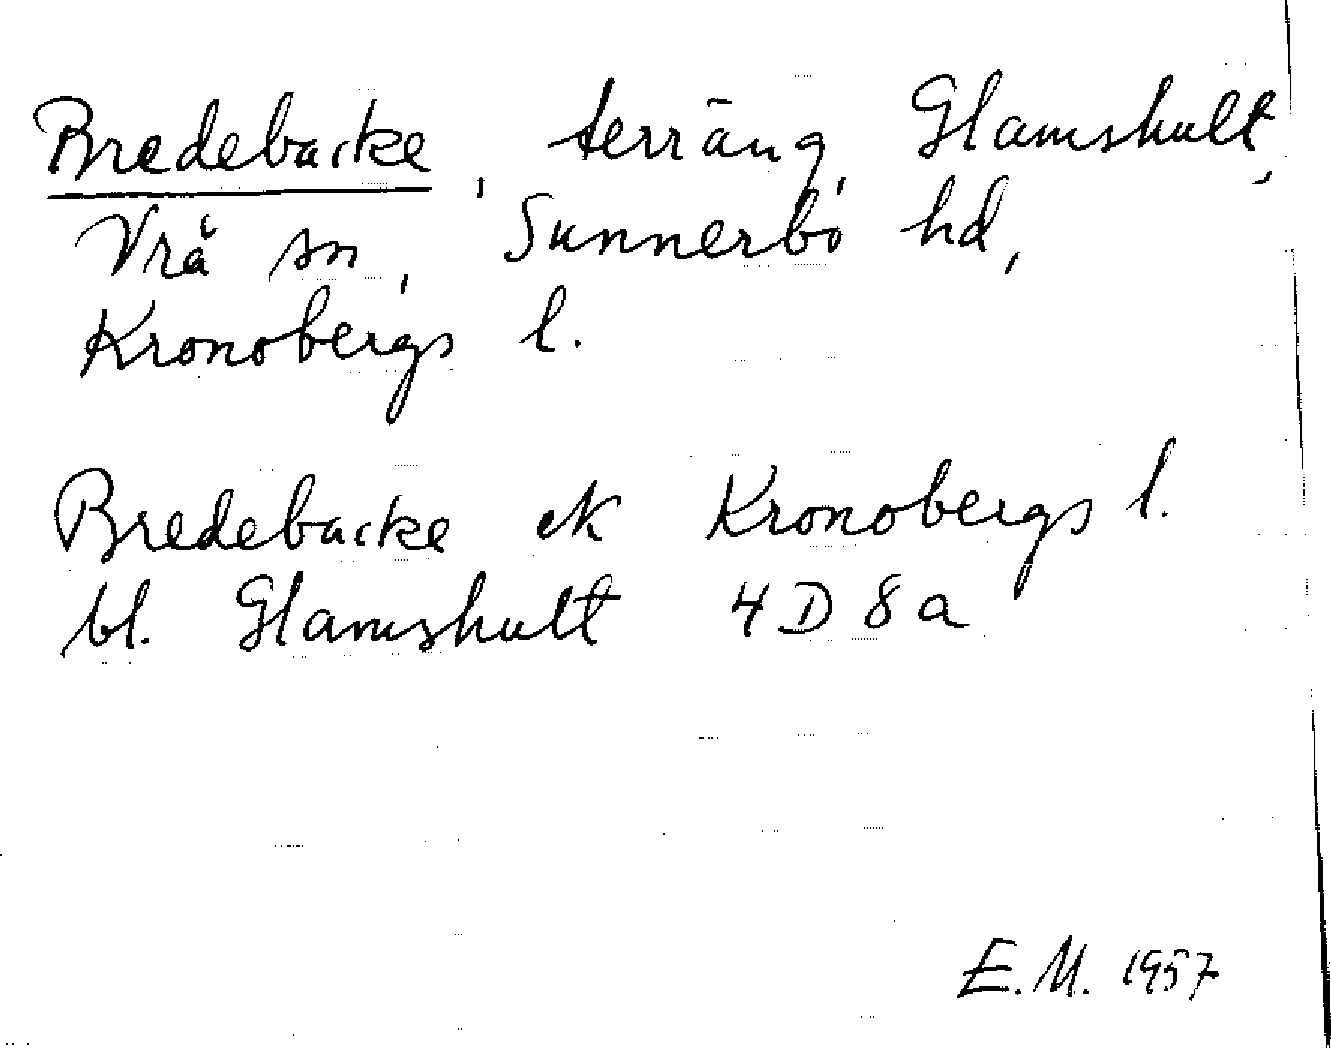 Bredebacke, terräng, Glamshult,
Vrå sn, Sunnerbo hd,
Kronobergs l.
Bredebacke ek Kronobergs l.
bl. Glamshult 4D 8a
E.M. 1957